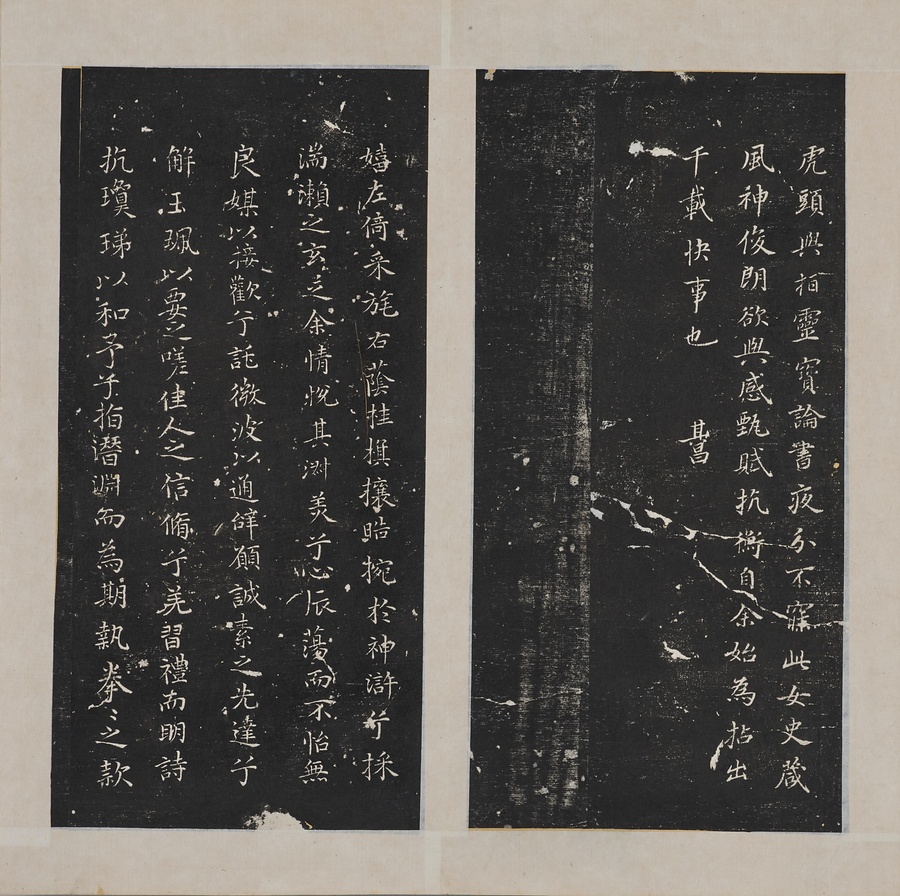 虎頭與桓靈寶論書夜分不寐此女史箴
風神俊朗欲與感甄賦抗衡自余始為拈出
千載快事也 其昌
嬉左倚采旄右蔭桂旗攘皓捥於神滸兮採
湍瀨之玄芝余情悅其淑美兮心振蕩而不怡無
良媒以接歡兮託微波以通辭願誠素之先達兮
解玉珮以要之嗟佳人之信脩兮羌習禮而明詩
抗瓊珶以和予兮指潛淵而為期執拳〻之款